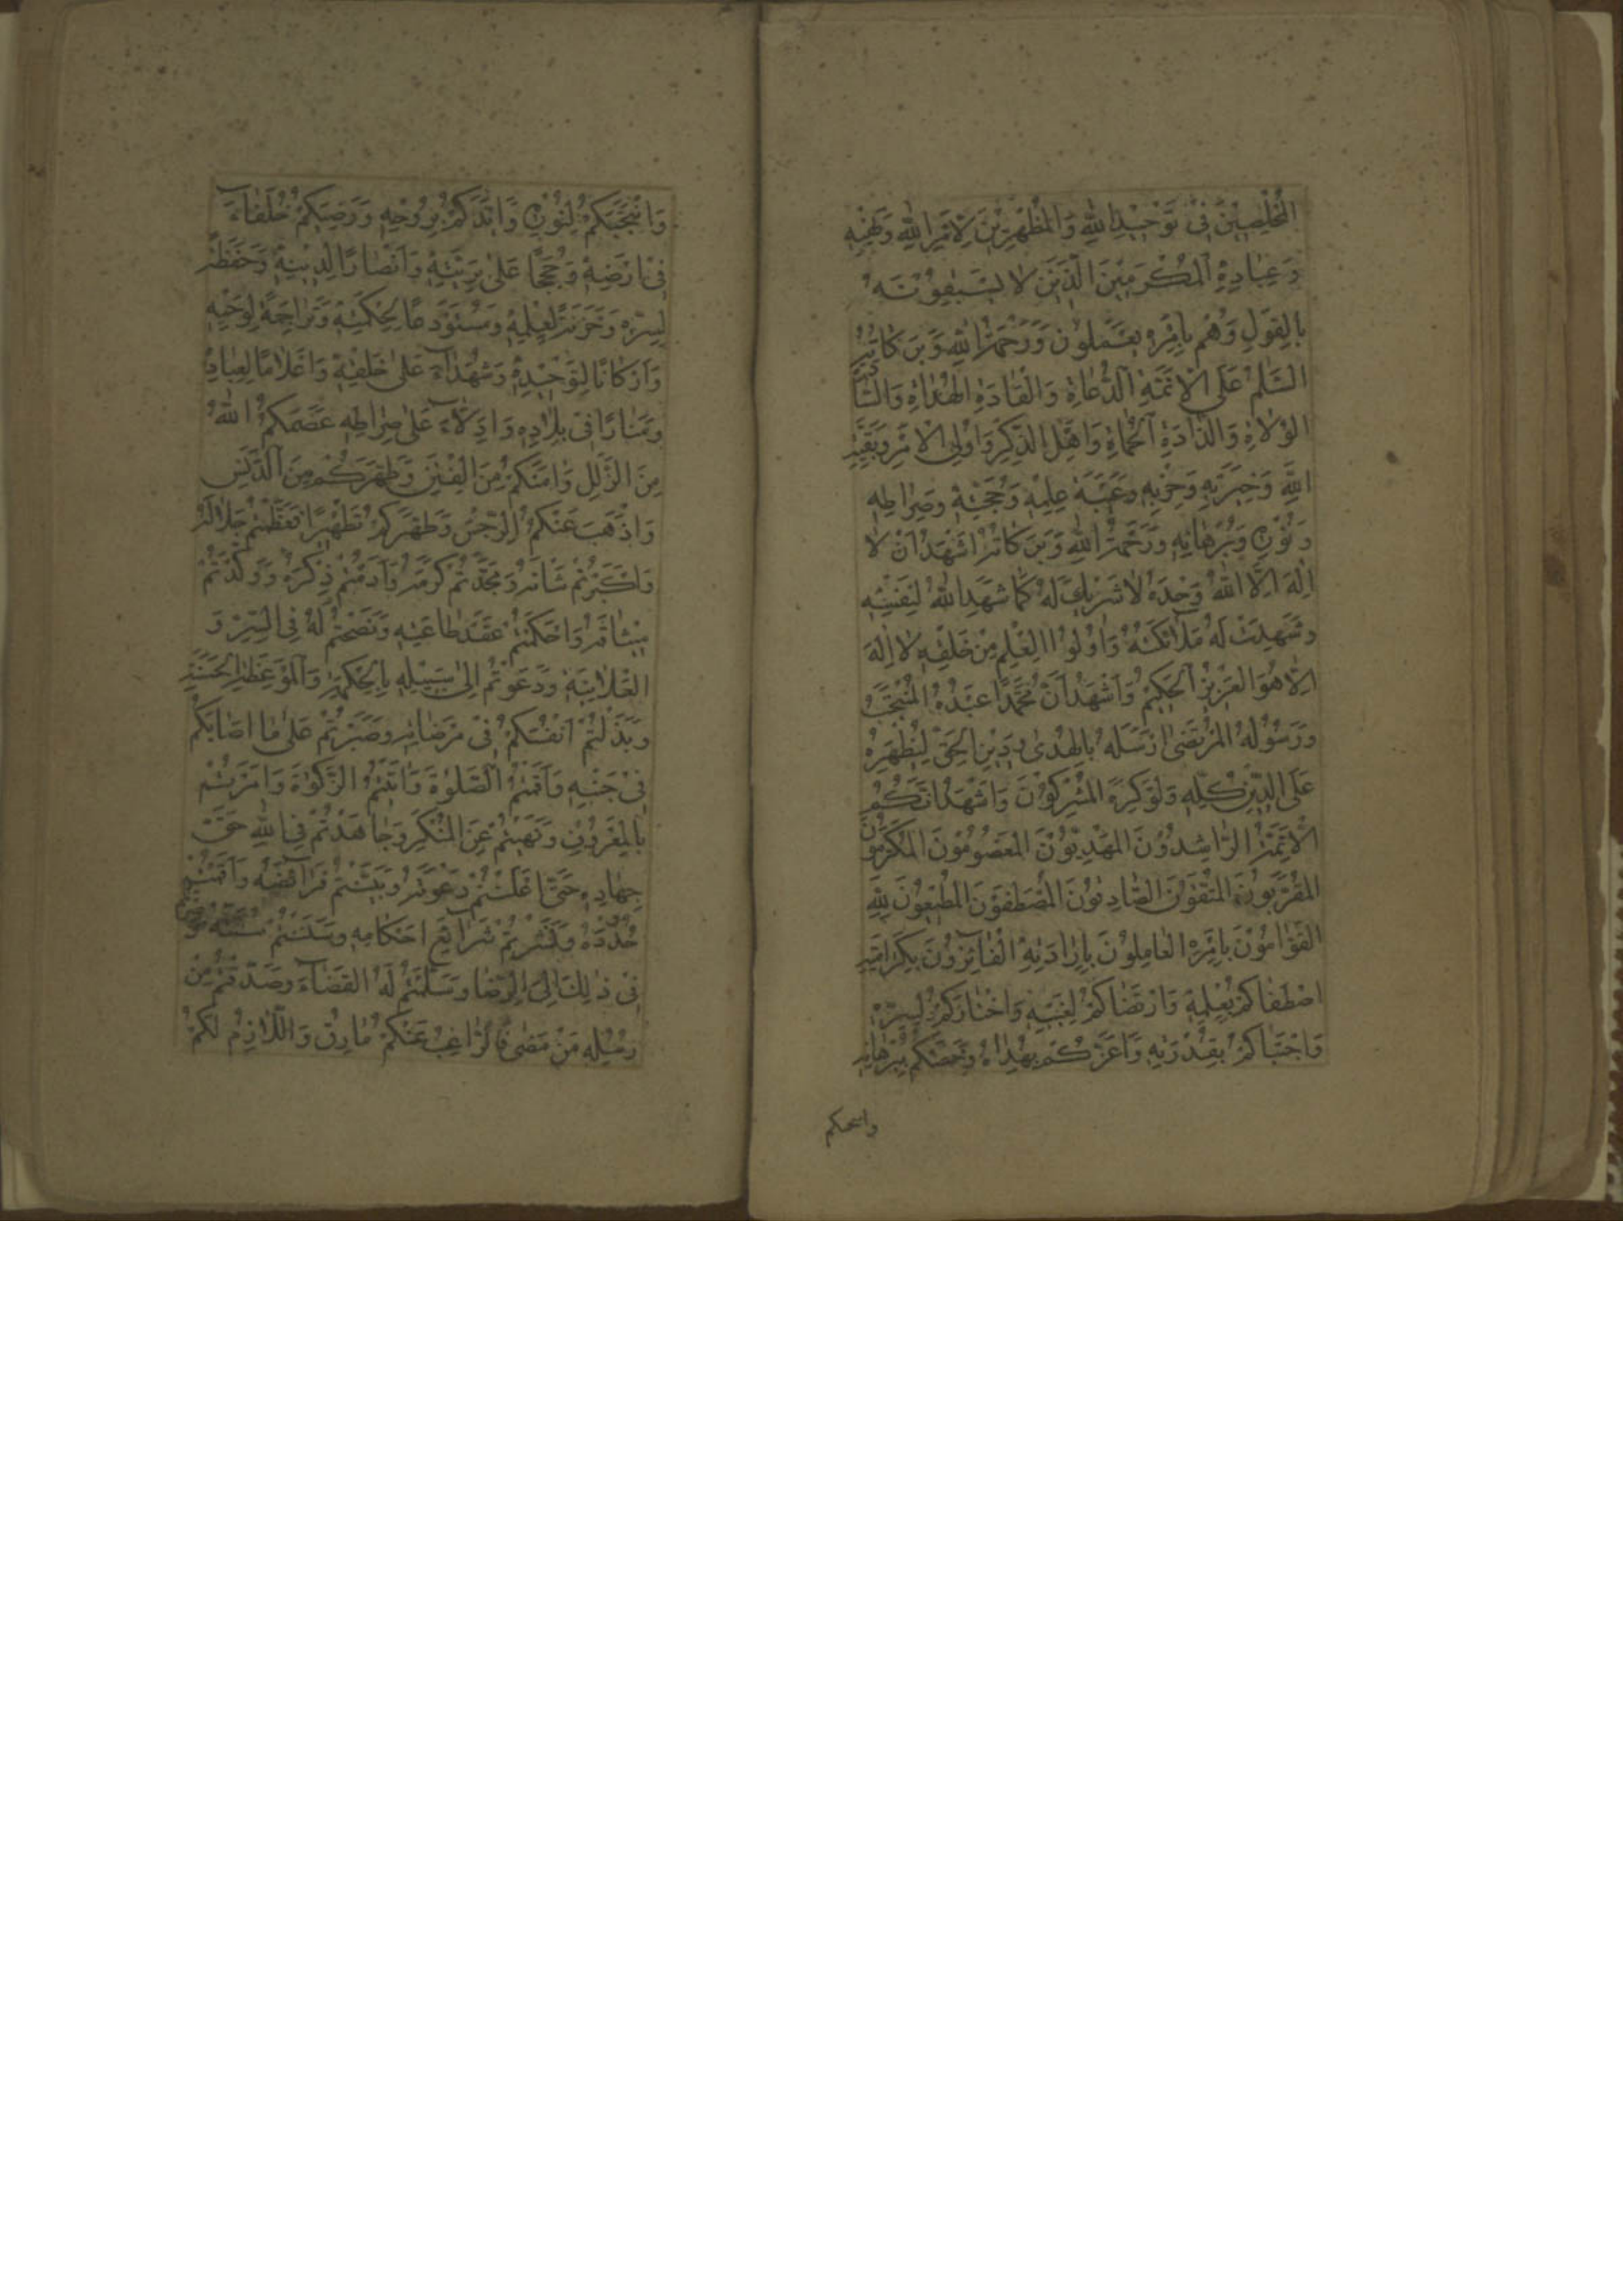 الْمُخْلِصِيْنَ فِيْ تَوْحِيْدِ اللّٰهِ وَالْمُظْهِرِيْنَ لِاَمْرِ اللّٰهِ وَنَهْيِهٖ
وَعِبَادِهِ الْمُكْرَمِيْنَ الَّذِيْنَ لَا يَسْبِقُوْنَهٗ
بِالْقَوْلِ وَهُمْ بِاَمْرِهٖ يَعْمَلُوْنَ وَرَحْمَةُ اللّٰهِ وَبَرَكَاتُهٗ
السَّلٰمُ عَلَى الْاَئِمَّةِ الدُّعَاةِ وَالْقَادَةِ الْهُدَاةِ وَالسَّادَةِ
الْوُلَاةِ وَالذَّادَةِ الْحُمَاةِ وَاَهْلِ الذِّكْرِ وَاُولِي الْاَمْرِ وَبَقِيَّةِ
اللّٰهِ وَخِيَرَتِهٖ وَحِزْبِهٖ وَعَيْبَةِ عِلْمِهٖ وَحُجَّتِهٖ وَصِرَاطِهٖ
وَنُوْرِهٖ وَبُرْهَانِهٖ وَرَحْمَةُ اللّٰهِ وَبَرَكَاتُهٗ اَشْهَدُ اَنْ لَا
اِلٰهَ اِلَّا اللّٰهُ وَحْدَهٗ لَا شَرِيْكَ لَهٗ كَمَا شَهِدَ اللّٰهُ لِنَفْسِهٖ
وَشَهِدَتْ لَهٗ مَلٰٓائِكَتُهٗ وَاُولُوا الْعِلْمِ مِنْ خَلْقِهٖ لَا اِلٰهَ
اِلَّا هُوَ الْعَزِيْزُ الْحَكِيْمُ وَاَشْهَدُ اَنَّ مُحَمَّدًا عَبْدُهُ الْمُنْتَجَبُ
وَرَسُوْلُهُ الْمُرْتَضٰى اَرْسَلَهٗ بِالْهُدٰى وَدِيْنِ الْحَقِّ لِيُظْهِرَهٗ
عَلَى الدِّيْنِ كُلِّهٖ وَلَوْ كَرِهَ الْمُشْرِكُوْنَ وَاَشْهَدُ اَنَّكُمُ
الْاَئِمَّةُ الرَّاشِدُوْنَ الْمَهْدِيُّوْنَ الْمَعْصُوْمُوْنَ الْمُكَرَّمُوْنَ
الْمُقَرَّبُوْنَ الْمُتَّقُوْنَ الصَّادِقُوْنَ الْمُصْطَفَوْنَ الْمُطِيْعُوْنَ لِلّٰهِ
الْقَوَّامُوْنَ بِاَمْرِهِ الْعَامِلُوْنَ بِاِرَادَتِهِ الْفَآئِزُوْنَ بِكَرَامَتِهٖ
اصْطَفَاكُمْ بِعِلْمِهٖ وَارْتَضَاكُمْ لِغَيْبِهٖ وَاخْتَارَكُمْ لِسِرِّهٖ
وَاجْتَبَاكُمْ بِقُدْرَتِهٖ وَاَعَزَّكُمْ بِهُدَاهُ وَخَصَّكُمْ بِبُرْهَانِهٖ
وَانْتَجَبَكُمْ لِنُوْرِهٖ وَاَيَّدَكُمْ بِرُوْحِهٖ وَرَضِيَكُمْ خُلَفَآءَ
فِيْ اَرْضِهٖ وَحُجَجًا عَلٰى بَرِيَّتِهٖ وَاَنْصَارًا لِدِيْنِهٖ وَحَفَظَةً
لِسِرِّهٖ وَخَزَنَةً لِعِلْمِهٖ وَمُسْتَوْدَعًا لِحِكْمَتِهٖ وَتَرَاجِمَةً لِوَحْيِهٖ
وَاَرْكَانًا لِتَوْحِيْدِهٖ وَشُهَدَآءَ عَلٰى خَلْقِهٖ وَاَعْلَامًا لِعِبَادِهٖ
وَمَنَارًا فِيْ بِلَادِهٖ وَاَدِلَّآءَ عَلٰى صِرَاطِهٖ عَصَمَكُمُ اللّٰهُ
مِنَ الزَّلَلِ وَاٰمَنَكُمْ مِنَ الْفِتَنِ وَطَهَّرَكُمْ مِنَ الدَّنَسِ
وَاَذْهَبَ عَنْكُمُ الرِّجْسَ وَطَهَّرَكُمْ تَطْهِيْرًا فَعَظَّمْتُمْ جَلَالَهٗ
وَاَكْبَرْتُمْ شَانَهٗ وَمَجَّدْتُمْ كَرَمَهٗ وَاَدَمْتُمْ ذِكْرَهٗ وَوَكَّدْتُمْ
مِيْثَاقَهٗ وَاَحْكَمْتُمْ عَقْدَ طَاعَتِهٖ وَنَصَحْتُمْ لَهٗ فِي السِّرِّ وَ
الْعَلَانِيَةِ وَدَعَوْتُمْ اِلٰى سَبِيْلِهٖ بِالْحِكْمَةِ وَالْمَوْعِظَةِ الْحَسَنَةِ
وَبَذَلْتُمْ اَنْفُسَكُمْ فِيْ مَرْضَاتِهٖ وَصَبَرْتُمْ عَلٰى مَا اَصَابَكُمْ
فِيْ جَنْبِهٖ وَاَقَمْتُمُ الصَّلٰوةَ وَاٰتَيْتُمُ الزَّكٰوةَ وَاَمَرْتُمْ
بِالْمَعْرُوْفِ وَنَهَيْتُمْ عَنِ الْمُنْكَرِ وَجَاهَدْتُمْ فِي اللّٰهِ حَقَّ
جِهَادِهٖ حَتّٰى اَعْلَنْتُمْ دَعْوَتَهٗ وَبَيَّنْتُمْ فَرَآئِضَهٗ وَاَقَمْتُمْ
حُدُوْدَهٗ وَنَشَرْتُمْ شَرَآيِعَ اَحْكَامِهٖ وَسَنَنْتُمْ سُنَّتَهٗ وَصِرْتُمْ
فِيْ ذٰلِكَ اِلَى الرِّضَا وَسَلَّمْتُمْ لَهُ الْقَضَآءَ وَصَدَّقْتُمْ مِنْ
رُسُلِهٖ مَنْ مَضٰى فَالرَّاغِبُ عَنْكُمْ مَارِقٌ وَاللَّازِمُ لَكُمْ